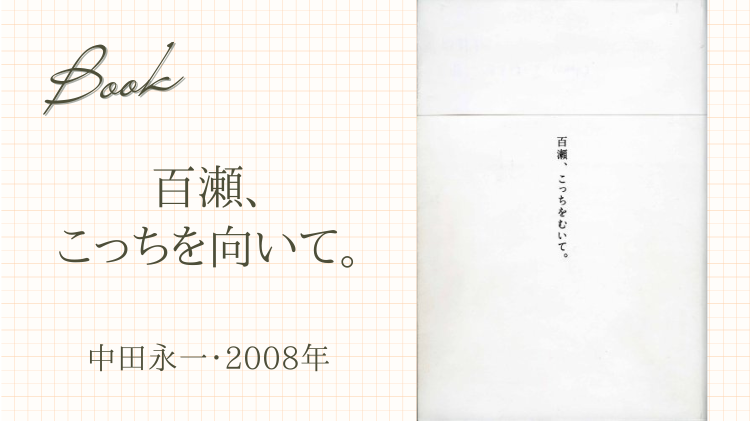 Book
百瀬、
こっちを向いて。
中田永一・2008年
百瀬、こっちをむいて。